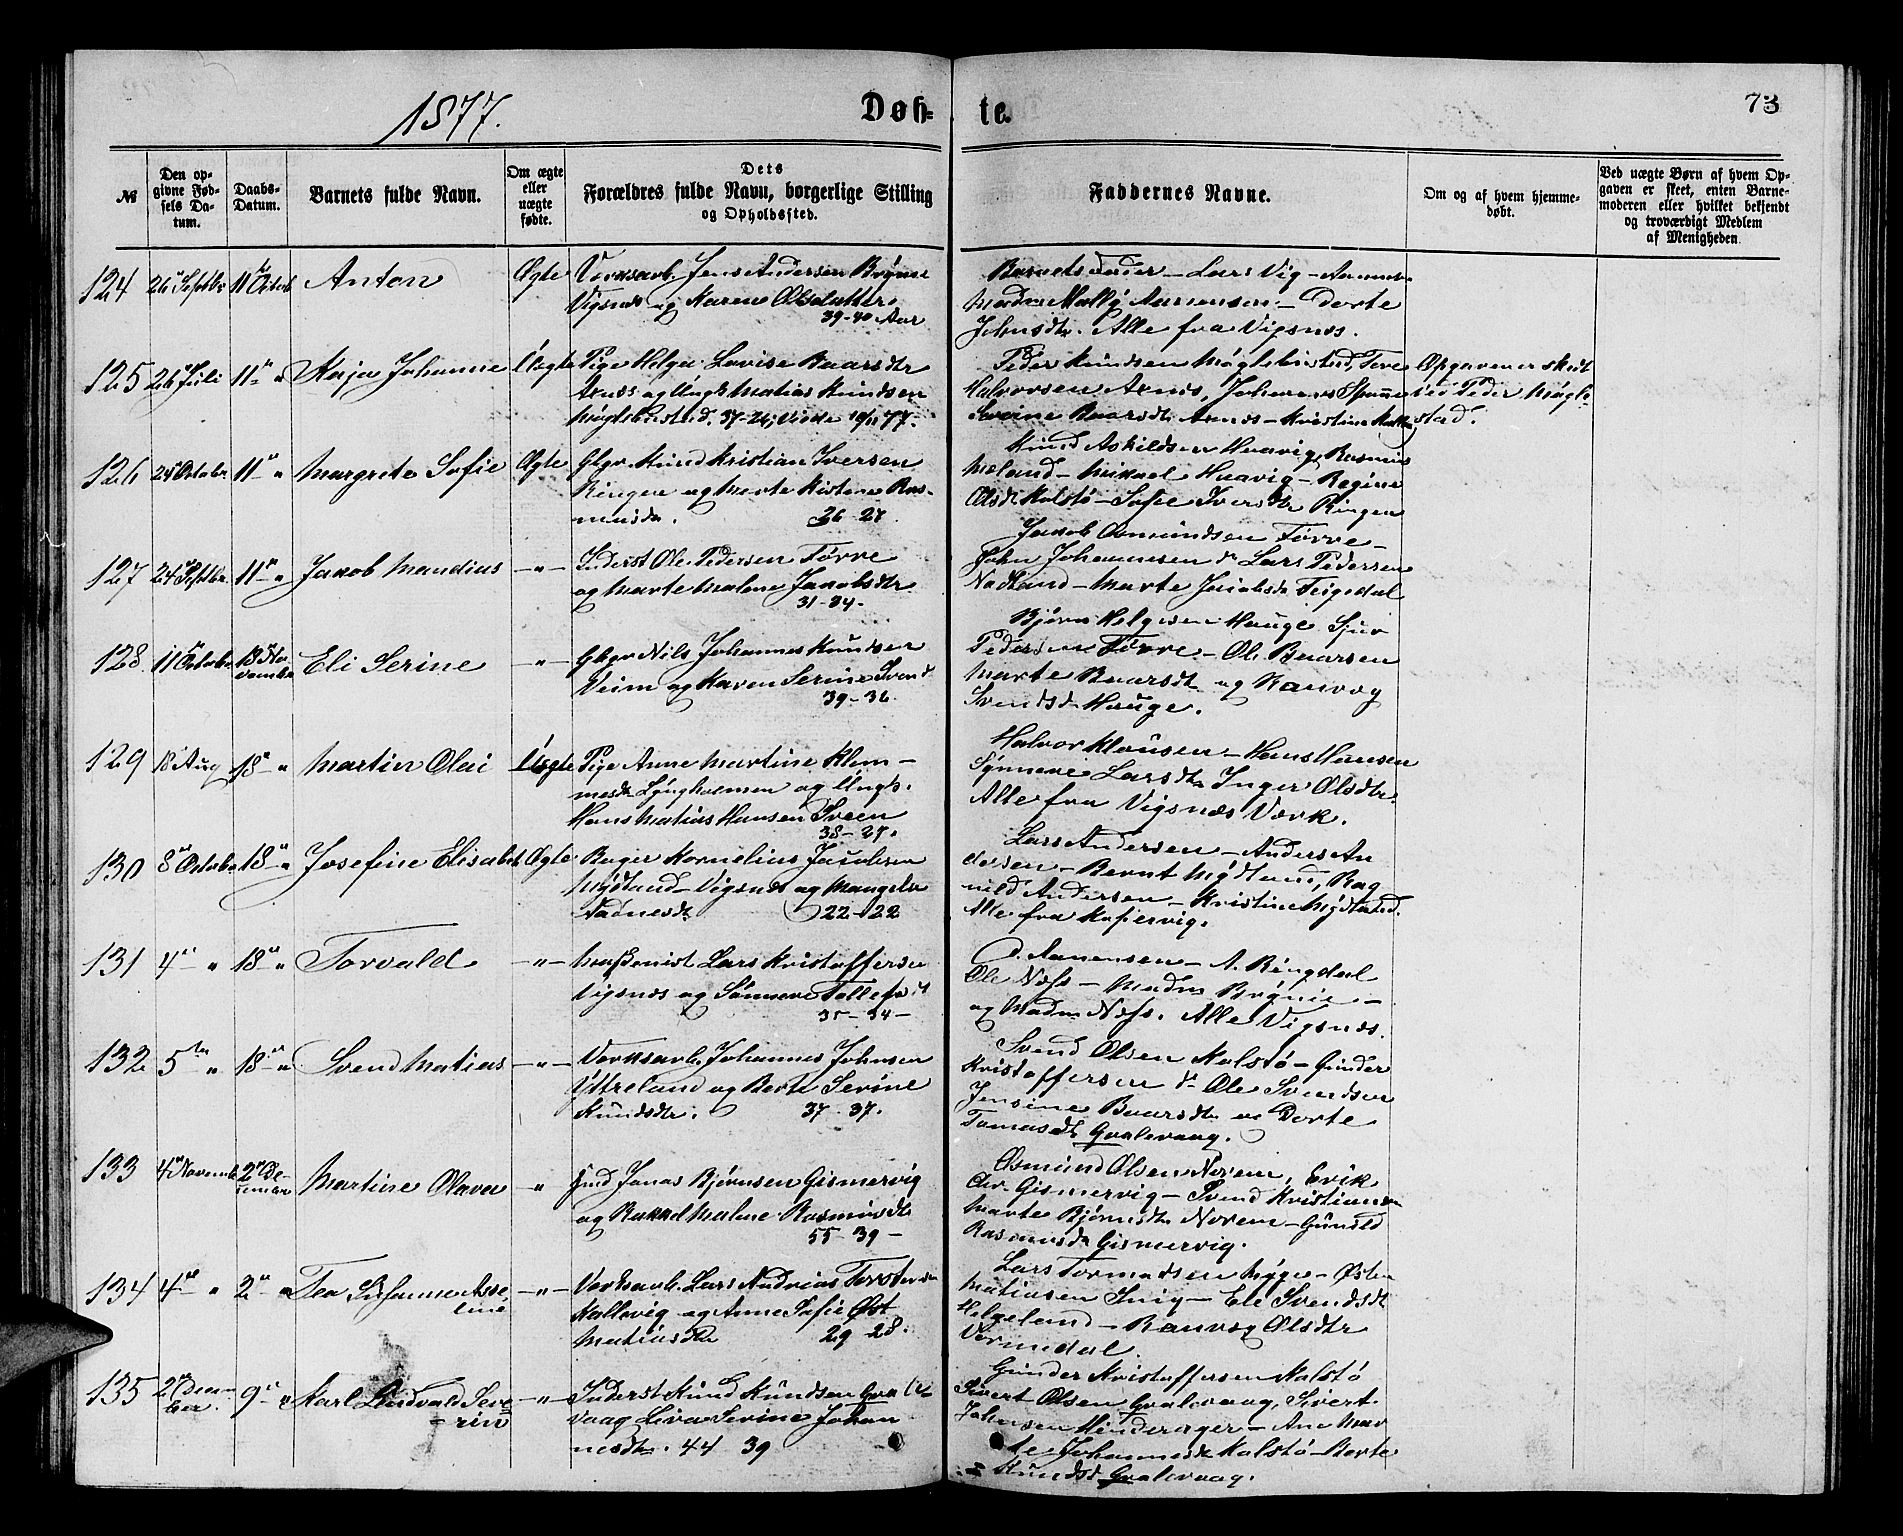 1877.
Døb-
te.
73
№
Den op-
givne Fød-
sels Da-
tum.
Daabs-
Datum.
Barnets fulde Navn.
Om ægte
eller
uægte
fødte.
Dets
Forældres fulde Navn, borgerlige Stilling
og Opholdssted.
Faddernes Navne.
Om og af hvem hjemme-
døbt.
Ved uægte Børn af hvem Op-
gaven er skeet, enten Barne-
moderen eller hvilket bekjendt
og troværdigt Medlem
af Menigheden.
124 26 Septbr 11 Octob Anton Ægte Værksarb. Jens Andersen Brynie
Vigsnæs og Karene Olsdatter
39-40 Aar
Barnets Fader – Lars Vig –
Mally Aanensen – Dorte
Johnsdtr. Alle fra Vigsnæs.
125 26 Juli 11 " Kaja Johanne Uægte Pige Helga Lovise Baarsdtr
Aknes og Ungk Matias Knudsen
Møglebustad. 37-24, Viede 10/11 77.
Peder Knudsen Møglebustad, Tore
Halvorsen Aknes, Johannes Spanne
Severine Baarsdtr Aknes – Kristine
Opgaven er skeet
ved Peder Mögle-
stad.
126 25 Octobr 11 " Margrete Sofie Ægte Gbgr Knud Kristian Iversen
Ringen og Merte Kistene Ras-
musdtr. 26-27.
Knud Askildsen Haavig, Rasmus
Meland – Mikael Haavig – Regine
Olsdtr Kalstø – Sofie Iversdtr Ringen
127 24 Septbr. 11 " Jakob Mandius – " – Inderst Ole Pedersen Førre
og Marte Malene Jacobsdtr
31-34.
Jakob Osmundsen Førre –
John Johannesen d. Lars Pedersen
Nodland – Marte Jacobsdtr Feigedal
128 11 Octobr 18 No-
vember Eli Serine – " – Gbgr Nils Johannes Knudsen
Veim og Karen Serine Svend
39-36.
Bjørn Helgesen Hauge Sjur
Pedersen Førre – Ole Baarsen
Marte Baarsdtr og Ranvæg
Svendsdtr Hauge.
129 18 Aug 18 " Martin Olai Uægte Pige Anne Martine Klem-
mesdtr Lyngholmen og Ungk.
Hans Matias Hansen Sveen
38-27.
Halvor Klausen – Hans Hansen
Synneve Larsdtr Inger Olsdtr.
Alle fra Vigsnæs Værk.
130 8 Octobr 18 " Josefine Elisabet Ægte Bager Kornelius Jacobsen
Mydland – Vigsnæs og Mangele
Tadnesdtr 22-22
Lars Andersen – Anders An
dersen – Bernt Mydland, Rag
nild Andersen – Kristine Mydland.
Alle fra Kopervig.
131 4 " 18 " Torvald – " – Maskenist Lars Kristoffersen
Vigsnæs og Sønneve Tollefsdt
35-34 –
O. Aanensen – A. Ringdal
Ole Næss – Madm Brynie –
og Madm Næss. Alle Vigsnæs.
132 5 " 18 " Svend Matias – " – Værksarb. Johannes Johnsen
Ytreland og Berte Serine
Knudsdtr. 37-37.
Svend Olsen Kalstø – Gunder
Kristoffersen d – Ole Svendsen
Jensine Baarsdtr og Dorte
Tomasdtr Gvalevaag.
133 4 Novemb 2 De-
cember Martine Olava " Ind Jonas Bjørnsen Gismervig
og Rakkel Malene Rasmusdtr
55-39 –
Osmund Olsen Norem, Erik
Chr. Gismervig – Svend Kristiansen
Marte Bjørnsdtr Norem – Gunild
Rasmusdtr Gismervig.
134 4 " 2 " Tea Susanne Asse
line – " – Værksarb. Lars Andreas Torstensen
Kallevig og Anne Sofie Øst
Matiasdtr 29-28.
Lars Tormodsen Myge – Østen
Matiasen Snig – Ele Svendsdtr
Helgeland – Ranveg Olsdtr
Vormedal.
135 2 Decem
ber 9 " Karl Ludvald Seve
rin – " – Inderst Knud Knudsen Gvale
vaag Liva Serine Johan
nesdtr. 44 39
Gunder Kristoffersen Kalstø
Sivert Olsen Gvalevaag, Sivert
Johnsen Hinderager – Ane Mar
te Johannesdtr Kalstø – Berte
Knudsdt Gvalevaag.